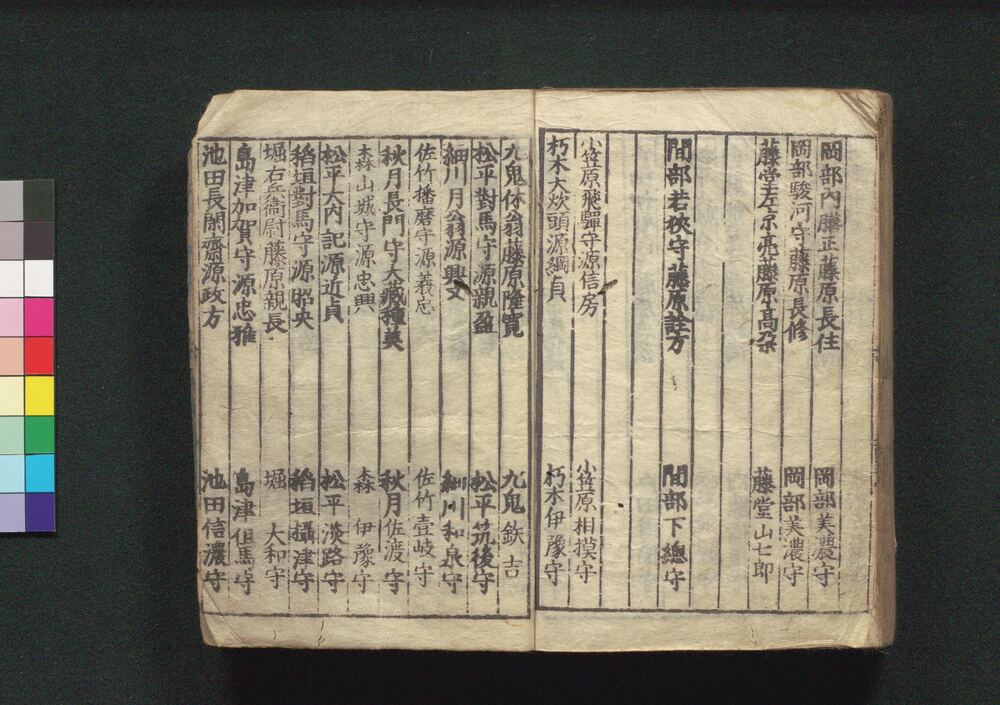 岡部内膳正藤原長住　岡部美濃守
岡部駿河守藤原長修　岡部美濃守
藤堂左京亮藤原高朶　藤堂山七郎
間部若狹守藤原詮方　間部下總守
小笠原飛驒守源信房　小笠原相摸守
朽木大炊頭源綱貞　朽木伊豫守
九鬼休翁藤原隆寛　九鬼鉄吉
松平對馬守源親盈　松平筑後守
細川月翁源興文　細川和泉守
佐竹播磨守源義忠　佐竹壹岐守
秋月長門守大藏種英　秋月佐渡守
森山城守源忠興　森伊豫守
松平大内記源近貞　松平淡路守
稻垣對馬守源昭央　稻垣攝津守
堀右兵衞尉藤原親長　堀大和守
島津加賀守源忠雅　島津但馬守
池田長閑齋源政方　池田信濃守